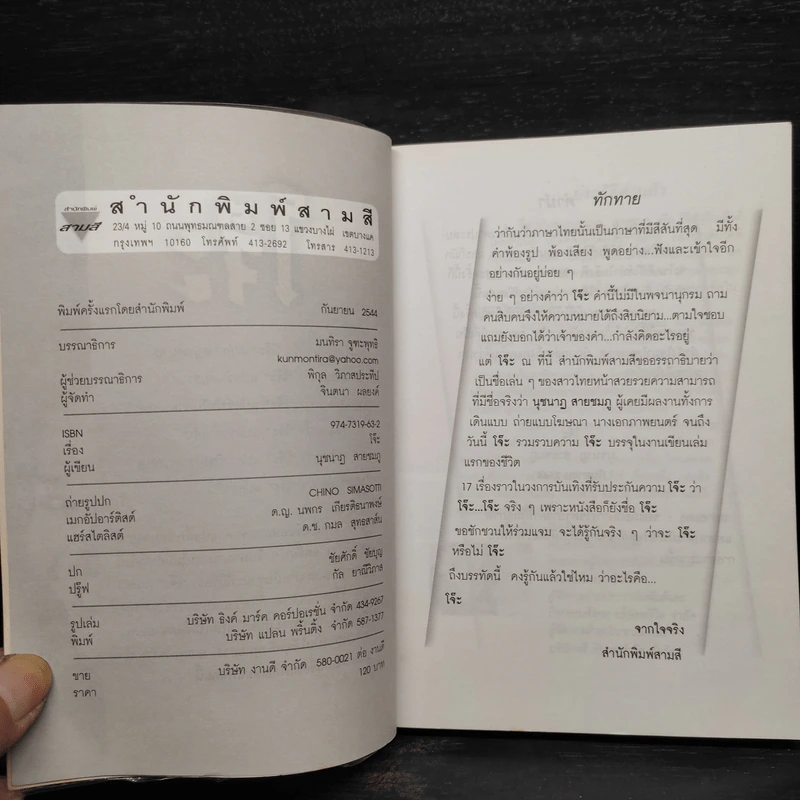 สำนักพิมพ์
สามสี
สำนักพิมพ์สามสี
23/4 หมู่ 10 ถนนพุทธมณฑลสาย 2 ซอย 13 แขวงบางไผ่ เขตบางแค
กรุงเทพฯ 10160 โทรศัพท์ 413-2692 โทรสาร 413-1213
พิมพ์ครั้งแรกโดยสำนักพิมพ์ กันยายน 2544
บรรณาธิการ มนทิรา จูฑะพุทธิ
kunmontira@yahoo.com
ผู้ช่วยบรรณาธิการ พิกุล วิภาสประทีป
ผู้จัดทำ จินตนา ผลยงค์
ISBN 974-7319-63-2
เรื่อง โจ๊ะ
ผู้เขียน นุชนาฏ สายชมภู
ถ่ายรูปปก CHINO SIMASOTTI
เมกอัปอาร์ติสต์ ด.ญ. นพกร เกียรติธนาพงษ์
แฮร์สไตลิสต์ ด.ช. กมล สุทธสาส์น
ปก ชัยศักดิ์ ชัยบุญ
ปรู๊ฟ กัล ยาณีวิภาส
รูปเล่ม บริษัท ธิงค์ มาร์ค คอร์ปอเรชั่น จำกัด 434-9267
พิมพ์ บริษัท แปลน พริ้นติ้ง จำกัด 587-1377
ขาย บริษัท งานดี จำกัด 580-0021 ต่อ งานดี
ราคา 120 บาท
ทักทาย
ว่ากันว่าภาษาไทยนั้นเป็นภาษาที่มีสีสันที่สุด มีทั้ง
คำพ้องรูป พ้องเสียง พูดอย่าง...ฟังและเข้าใจอีก
อย่างกันอยู่บ่อย ๆ
ง่าย ๆ อย่างคำว่า โจ๊ะ คำนี้ไม่มีในพจนานุกรม ถาม
คนสิบคนจึงให้ความหมายได้ถึงสิบนิยาม...ตามใจชอบ
แถมยังบอกได้ว่าเจ้าของคำ...กำลังคิดอะไรอยู่
แต่ โจ๊ะ ณ ที่นี้ สำนักพิมพ์สามสีขออรรถาธิบายว่า
เป็นชื่อเล่น ๆ ของสาวไทยหน้าสวยรวยความสามารถ
ที่มีชื่อจริงว่า นุชนาฏ สายชมภู ผู้เคยมีผลงานทั้งการ
เดินแบบ ถ่ายแบบโฆษณา นางเอกภาพยนตร์ จนถึง
วันนี้ โจ๊ะ รวมรวบความ โจ๊ะ บรรจุในงานเขียนเล่ม
แรกของชีวิต
17 เรื่องราวในวงการบันเทิงที่รับประกันความ โจ๊ะ ว่า
โจ๊ะ...โจ๊ะ จริง ๆ เพราะหนังสือก็ยังชื่อ โจ๊ะ
ขอชักชวนให้ร่วมแจม จะได้รู้กันจริง ๆ ว่าจะ โจ๊ะ
หรือไม่ โจ๊ะ
ถึงบรรทัดนี้ คงรู้กันแล้วใช่ไหม ว่าอะไรคือ...
โจ๊ะ
จากใจจริง
สำนักพิมพ์สามสี